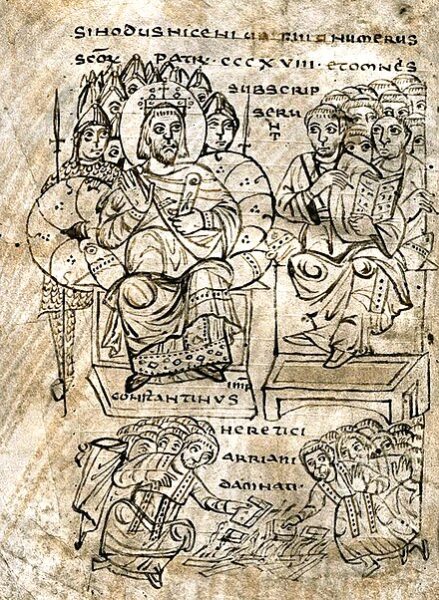 SINODUS NICENI UBI FUIT NUMERUS
SCŌR PATRU· CCCXVIII· ET OMNES
SUBSCRIP
SERU
NT
IMP
CONSTANTINUS
HERETICI
ARRIANI
DAMNATI·